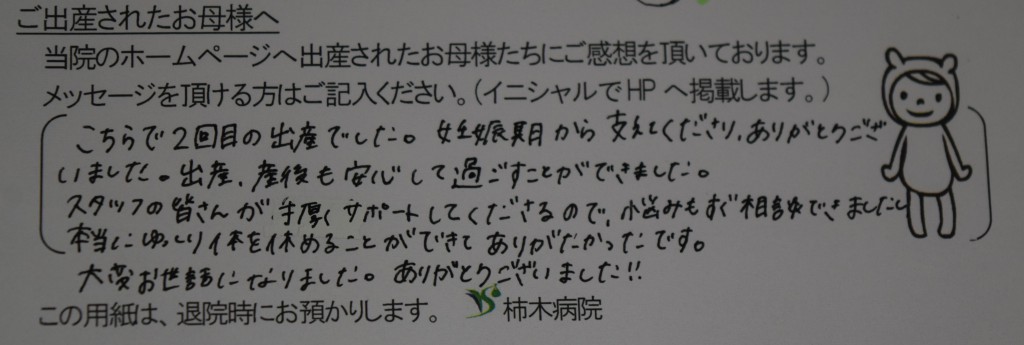 ご出産されたお母様へ
当院のホームページへ出産されたお母様たちにご感想を頂いております。
メッセージを頂ける方はご記入ください。(イニシャルでHPへ掲載します。)
こちらで2回目の出産でした。妊娠期から支えてくださり、ありがとうござ
いました。出産、産後も安心して過ごすことができました。
スタッフの皆さんが手厚くサポートしてくださるので、悩みもすぐ相談できましたし
本当にゆっくり体を休めることができてありがたかったです。
大変お世話になりました。ありがとうございました!!
この用紙は、退院時にお預かりします。 柿木病院